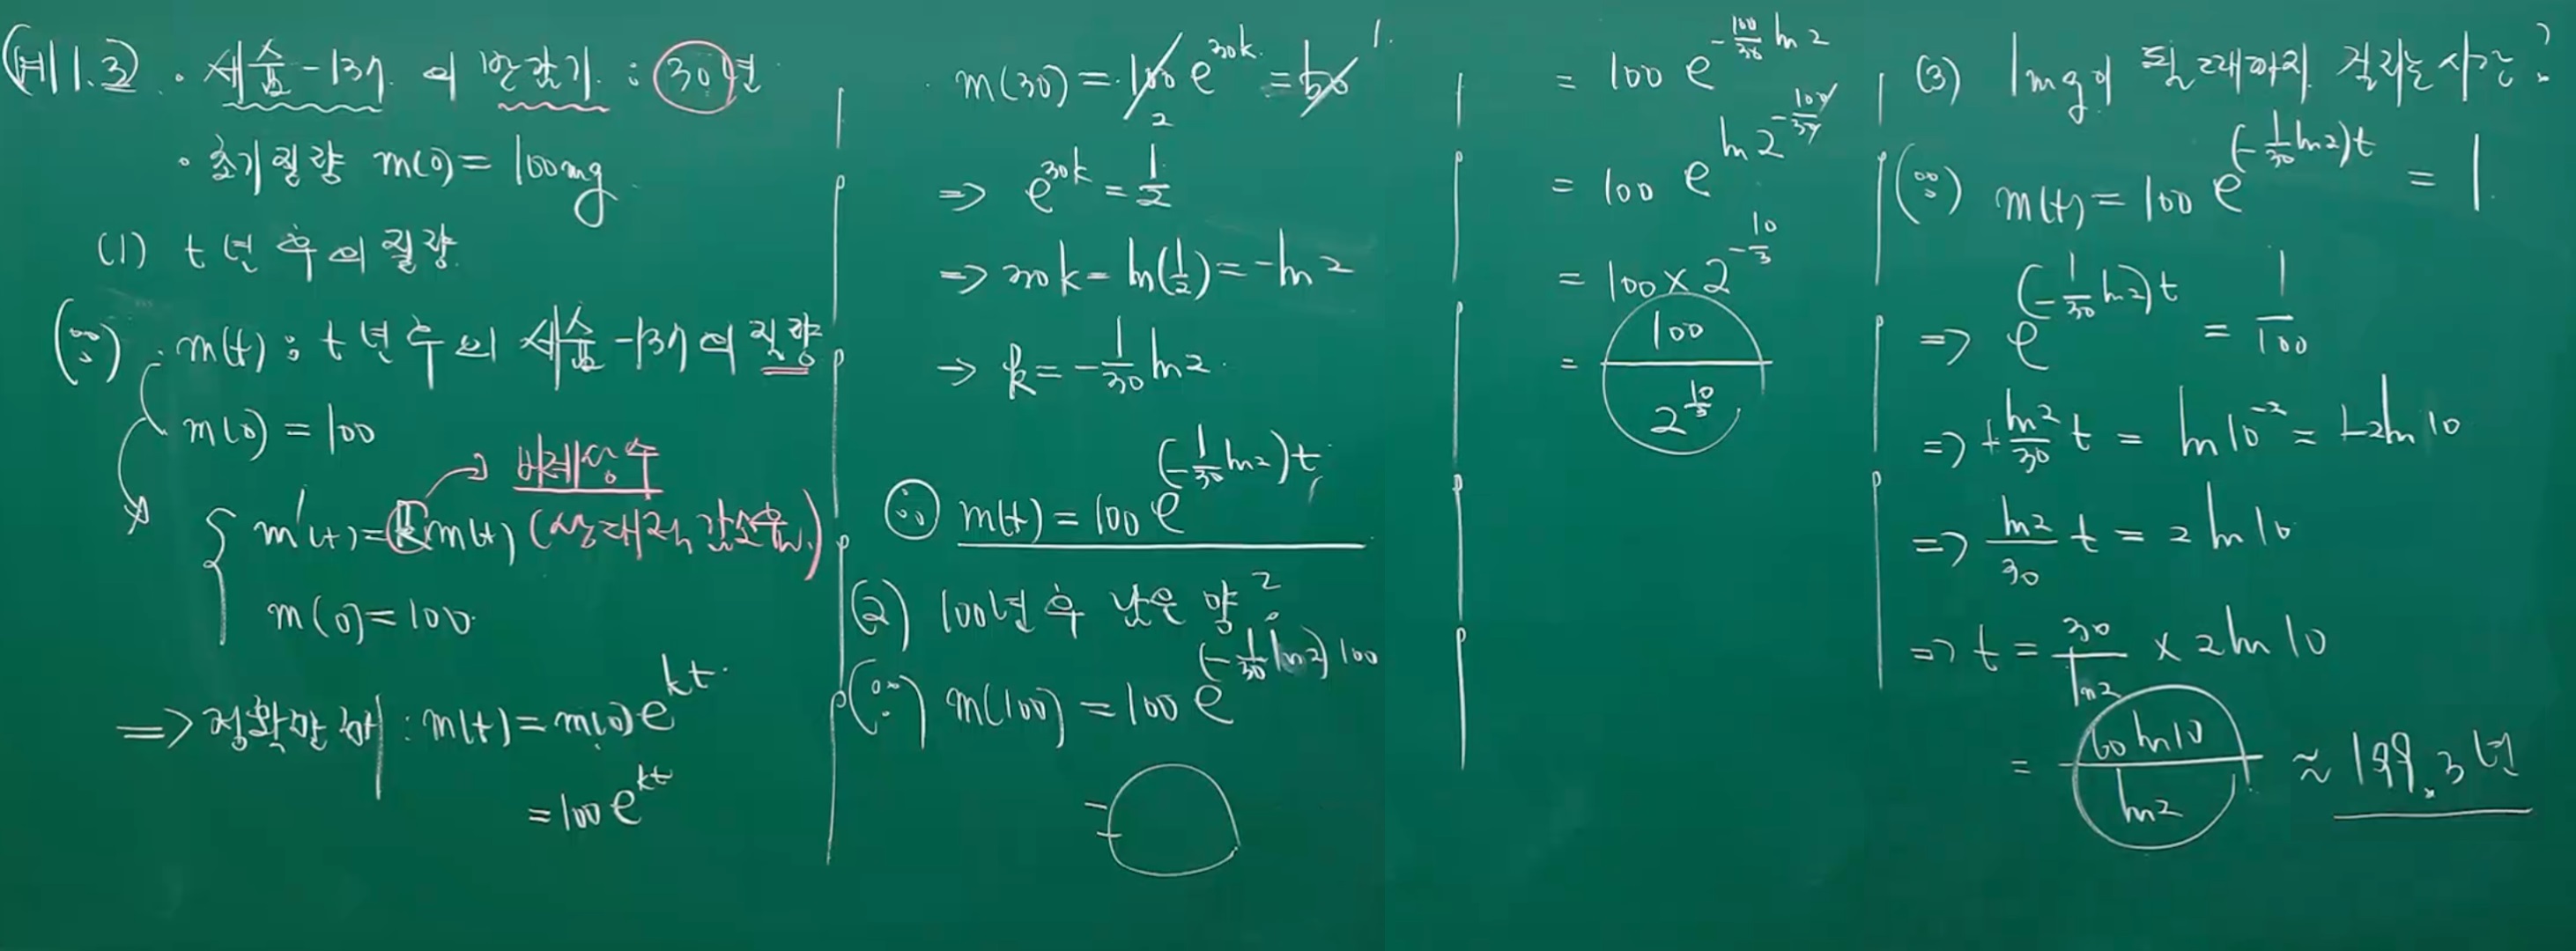 (예1.3) · 세슘-137 의 반감기 : 30년
· 초기질량 m(0) = 100mg
(1) t년 후의 질량
(풀이) · m(t) : t년 후의 세슘-137의 질량
m(0) = 100
비례상수
m'(t) = k m(t) (상대적 감소율)
m(0) = 100
=> 정확한 해 : m(t) = m(0)e^{kt}
= 100e^{kt}
· m(30) = 100 e^{30k} = 50
2 1
=> e^{30k} = 1/2
=> 30k = ln(1/2) = -ln 2
→ k = -1/30 ln2
∴ m(t) = 100 e^{(-1/30 ln2)t}
(2) 100년 후 남은 양?
m(100) = 100 e^{(-1/30 ln2)100}
=
= 100 e^{-100/30 ln 2}
= 100 e^{ln 2^{-100/30}}
= 100 × 2^{-10/3}
= 100 / 2^{10/3}
(3) 1mg이 될 때까지 걸리는 시간?
m(t) = 100 e^{(-1/30 ln2)t} = 1
=> e^{(-1/30 ln2)t} = 1/100
=> + ln2/30 t = ln10^{-2} = +2ln 10
=> ln2/30 t = 2 ln 10
=> t = 30/ln2 × 2ln 10
= 60 ln10 / ln2 ≈ 199.3년